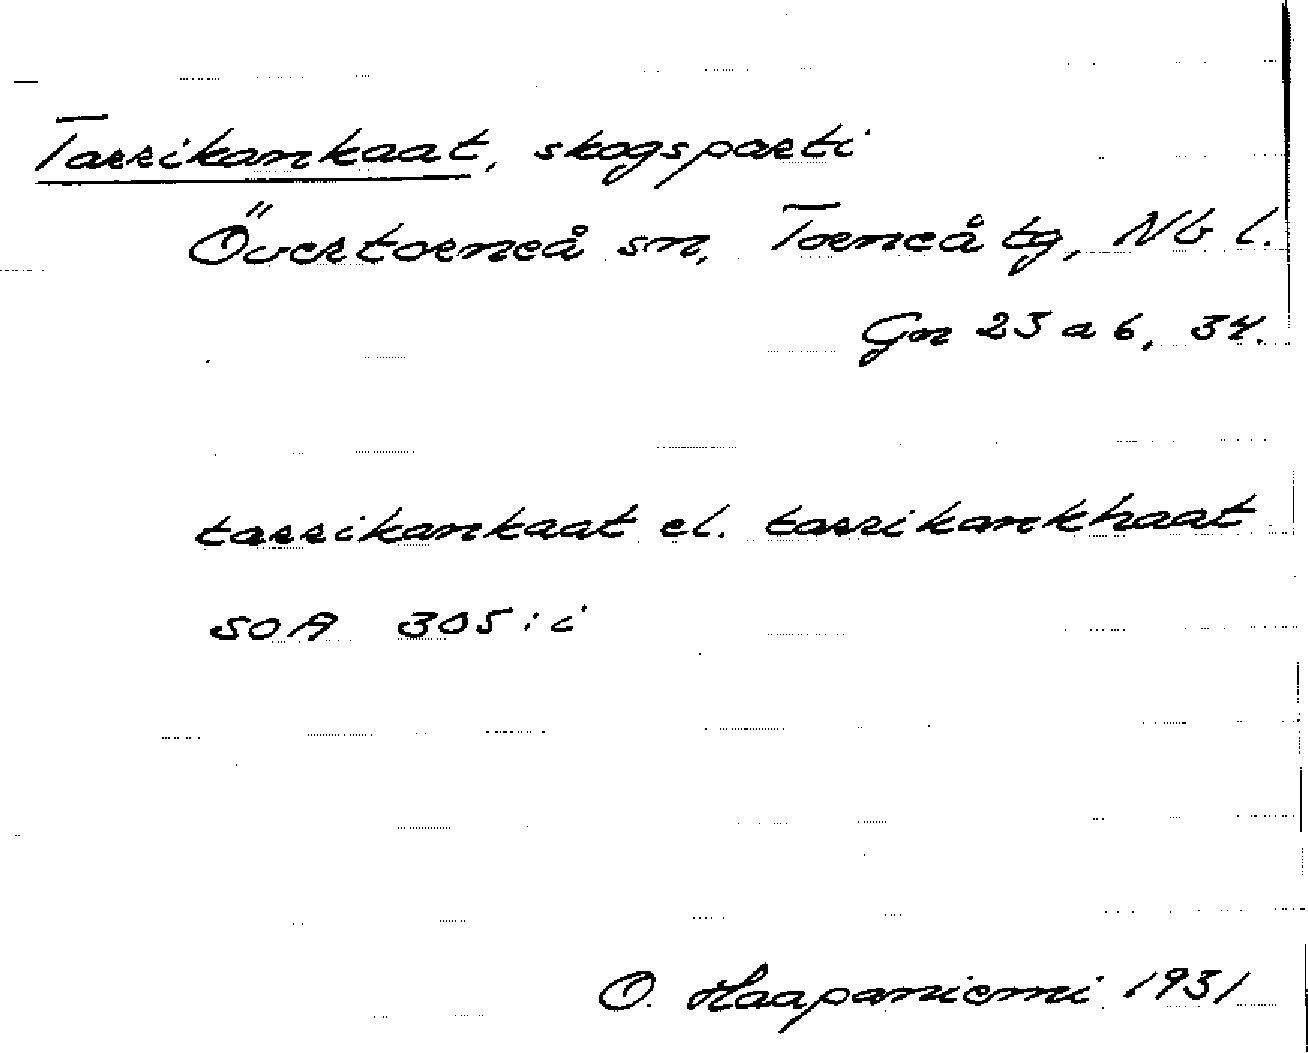 Tarrikankaat, skogsparti
Övertorneå sn, Torneå tg, Nb l.
Gn 23 a 6, 34.
tarrikankaat el. tarrikankhaat
SOA 305:i
O. Haapaniemi 1931